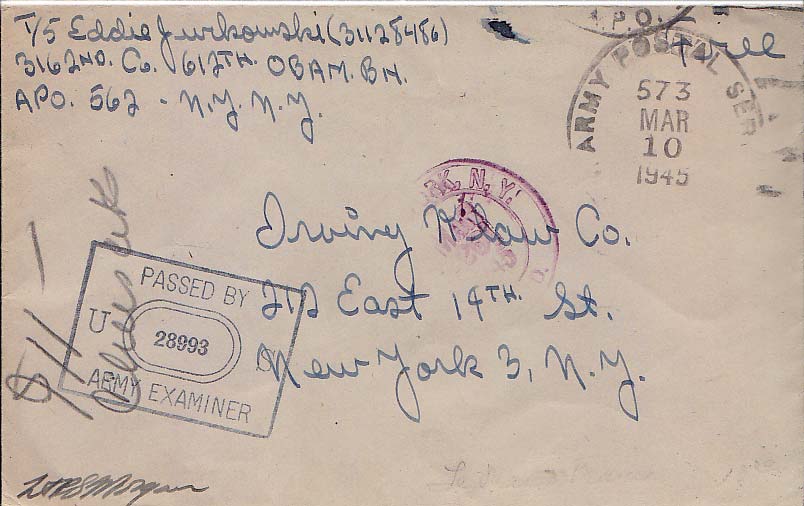 T/5 Eddie Jurkowski (31128486)
3162ND. Co. 612TH. OBAM. BN.
APO. 562 - N.Y. N.Y.
A.P.O.
Free
ARMY POSTAL SER
573
MAR
10
1945
RK, N.Y.
Irving Klaw Co.
212 East 14TH. St.
New York 3, N.Y.
PASSED BY
U S
28993
ARMY EXAMINER
$11-